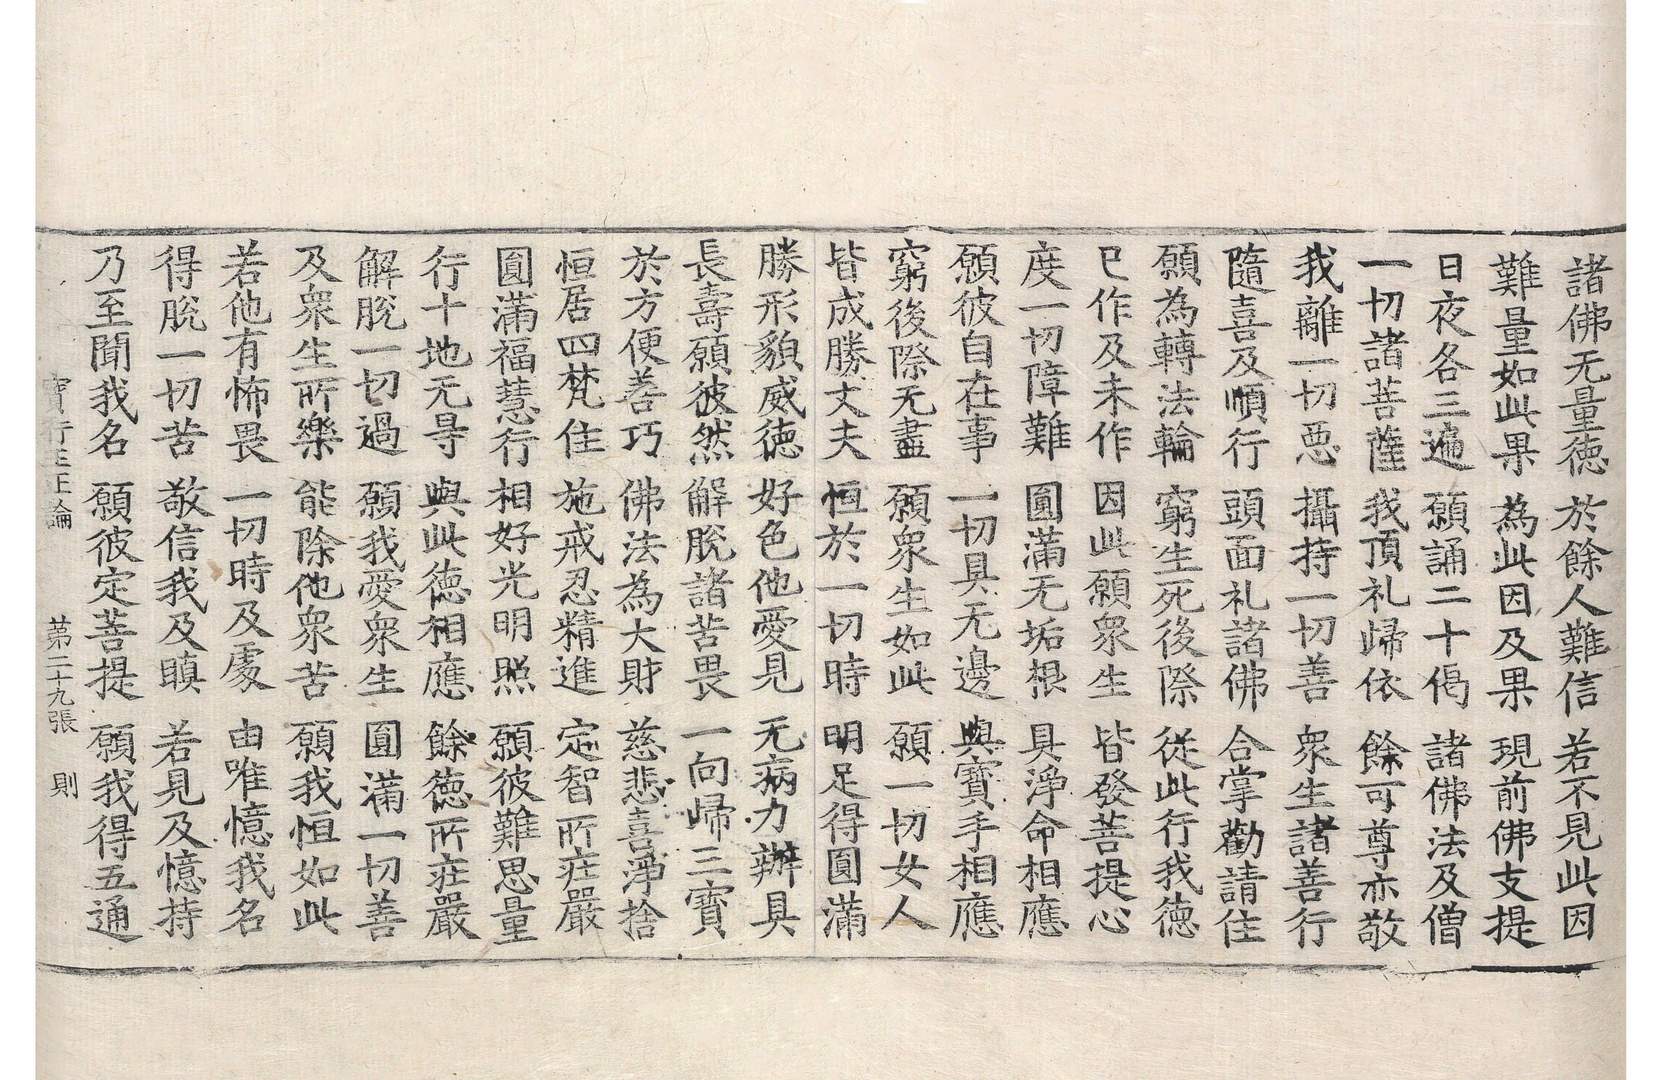 諸佛无量徳　於餘人難信　若不見此因
難量如此果　為此因及果　現前佛支提
日夜各三遍　願誦二十偈　諸佛法及僧
一切諸菩薩　我頂礼歸依　餘可尊亦敬
我離一切惡　攝持一切善　衆生諸善行
隨喜及順行　頭面礼諸佛　合掌勸請住
願為轉法輪　窮生死後際　從此行我徳
已作及未作　因此願衆生　皆發菩提心
度一切障難　圓滿无垢根　具淨命相應
願彼自在事　一切具无邊　與寶手相應
窮後際无盡　願衆生如此　願一切女人
皆成勝丈夫　恒於一切時　明足得圓滿
勝形貌威徳　好色他愛見　无病力辦具
長壽願彼然　解脫諸苦畏　一向歸三寶
於方便善巧　佛法為大財　慈悲喜淨捨
恒居四梵住　施戒忍精進　定智所莊嚴
圓滿福慧行　相好光明照　願彼難思量
行十地无㝵　與此徳相應　餘徳所莊嚴
解脫一切過　願我愛衆生　圓滿一切善
及衆生所樂　能除他衆苦　願我恒如此
若他有怖畏　一切時及處　由唯憶我名
得脫一切苦　敬信我及瞋　若見及憶持
乃至聞我名　願彼定菩提　願我得五通
寶行王正論　第二十九張　則